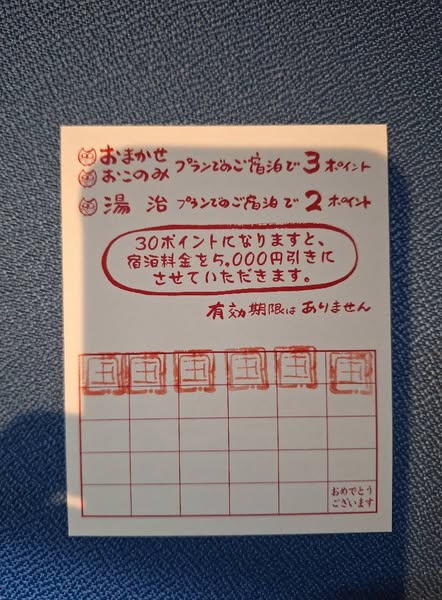 おまかせ プランでのご宿泊で 3 ポイント
おこのみ
湯 治 プランでのご宿泊で 2 ポイント
30ポイントになりますと、
宿泊料金を5,000円引きに
させていただきます。
有効期限はありません
五 五 五 五 五 五
おめでとう
ございます